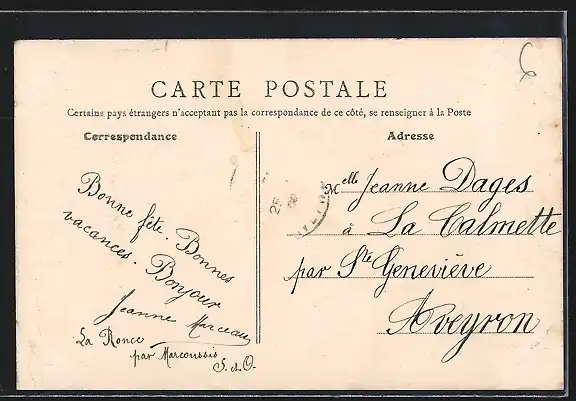 CARTE POSTALE
Certains pays étrangers n'acceptant pas la correspondance de ce côté, se renseigner à la Poste
Correspondance
Bonne fête. Bonnes
vacances. Bonjour
Jeanne Marceau
La Ronce
par Marcoussis
S. et O.
Adresse
Melle Jeanne Dages
à La Calmette
par Ste Geneviève
Aveyron